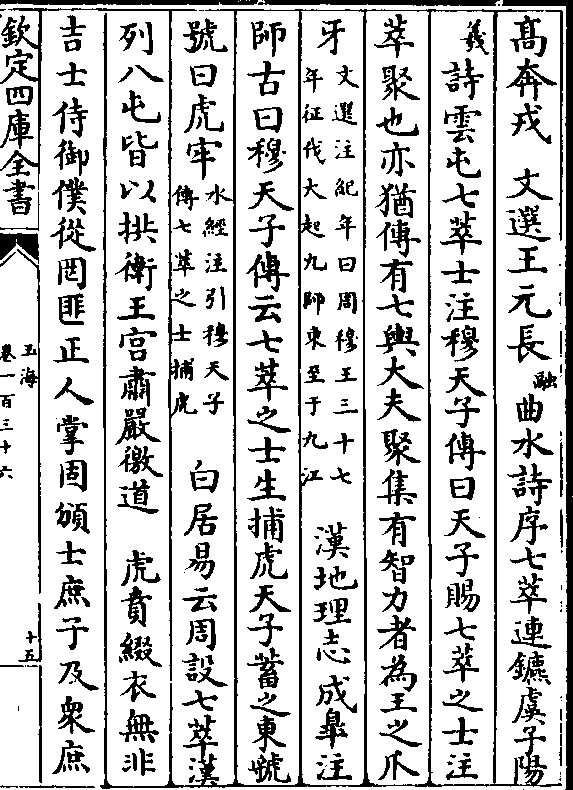 髙奔戎　文選王元長融曲水詩序七萃連鑣虞子陽
羲詩雲屯七萃士注穆天子傳曰天子賜七萃之士注
萃聚也亦猶傳有七輿大夫聚集有智力者為王之爪
牙文選注紀年曰周穆王三十七年征伐大起九師東至于九江　漢地理志成臯注
師古曰穆天子傳云七萃之士生捕虎天子蓄之東虢
號曰虎牢水經注引穆天子傳七萃之士捕虎　白居易云周設七萃漢
列八屯皆以拱衛王宫肅嚴徼道　虎賁綴衣無非
吉士侍御僕從罔匪正人掌固頒士庶子及衆庶
欽定四庫全書
玉海
卷一百三十六
十五